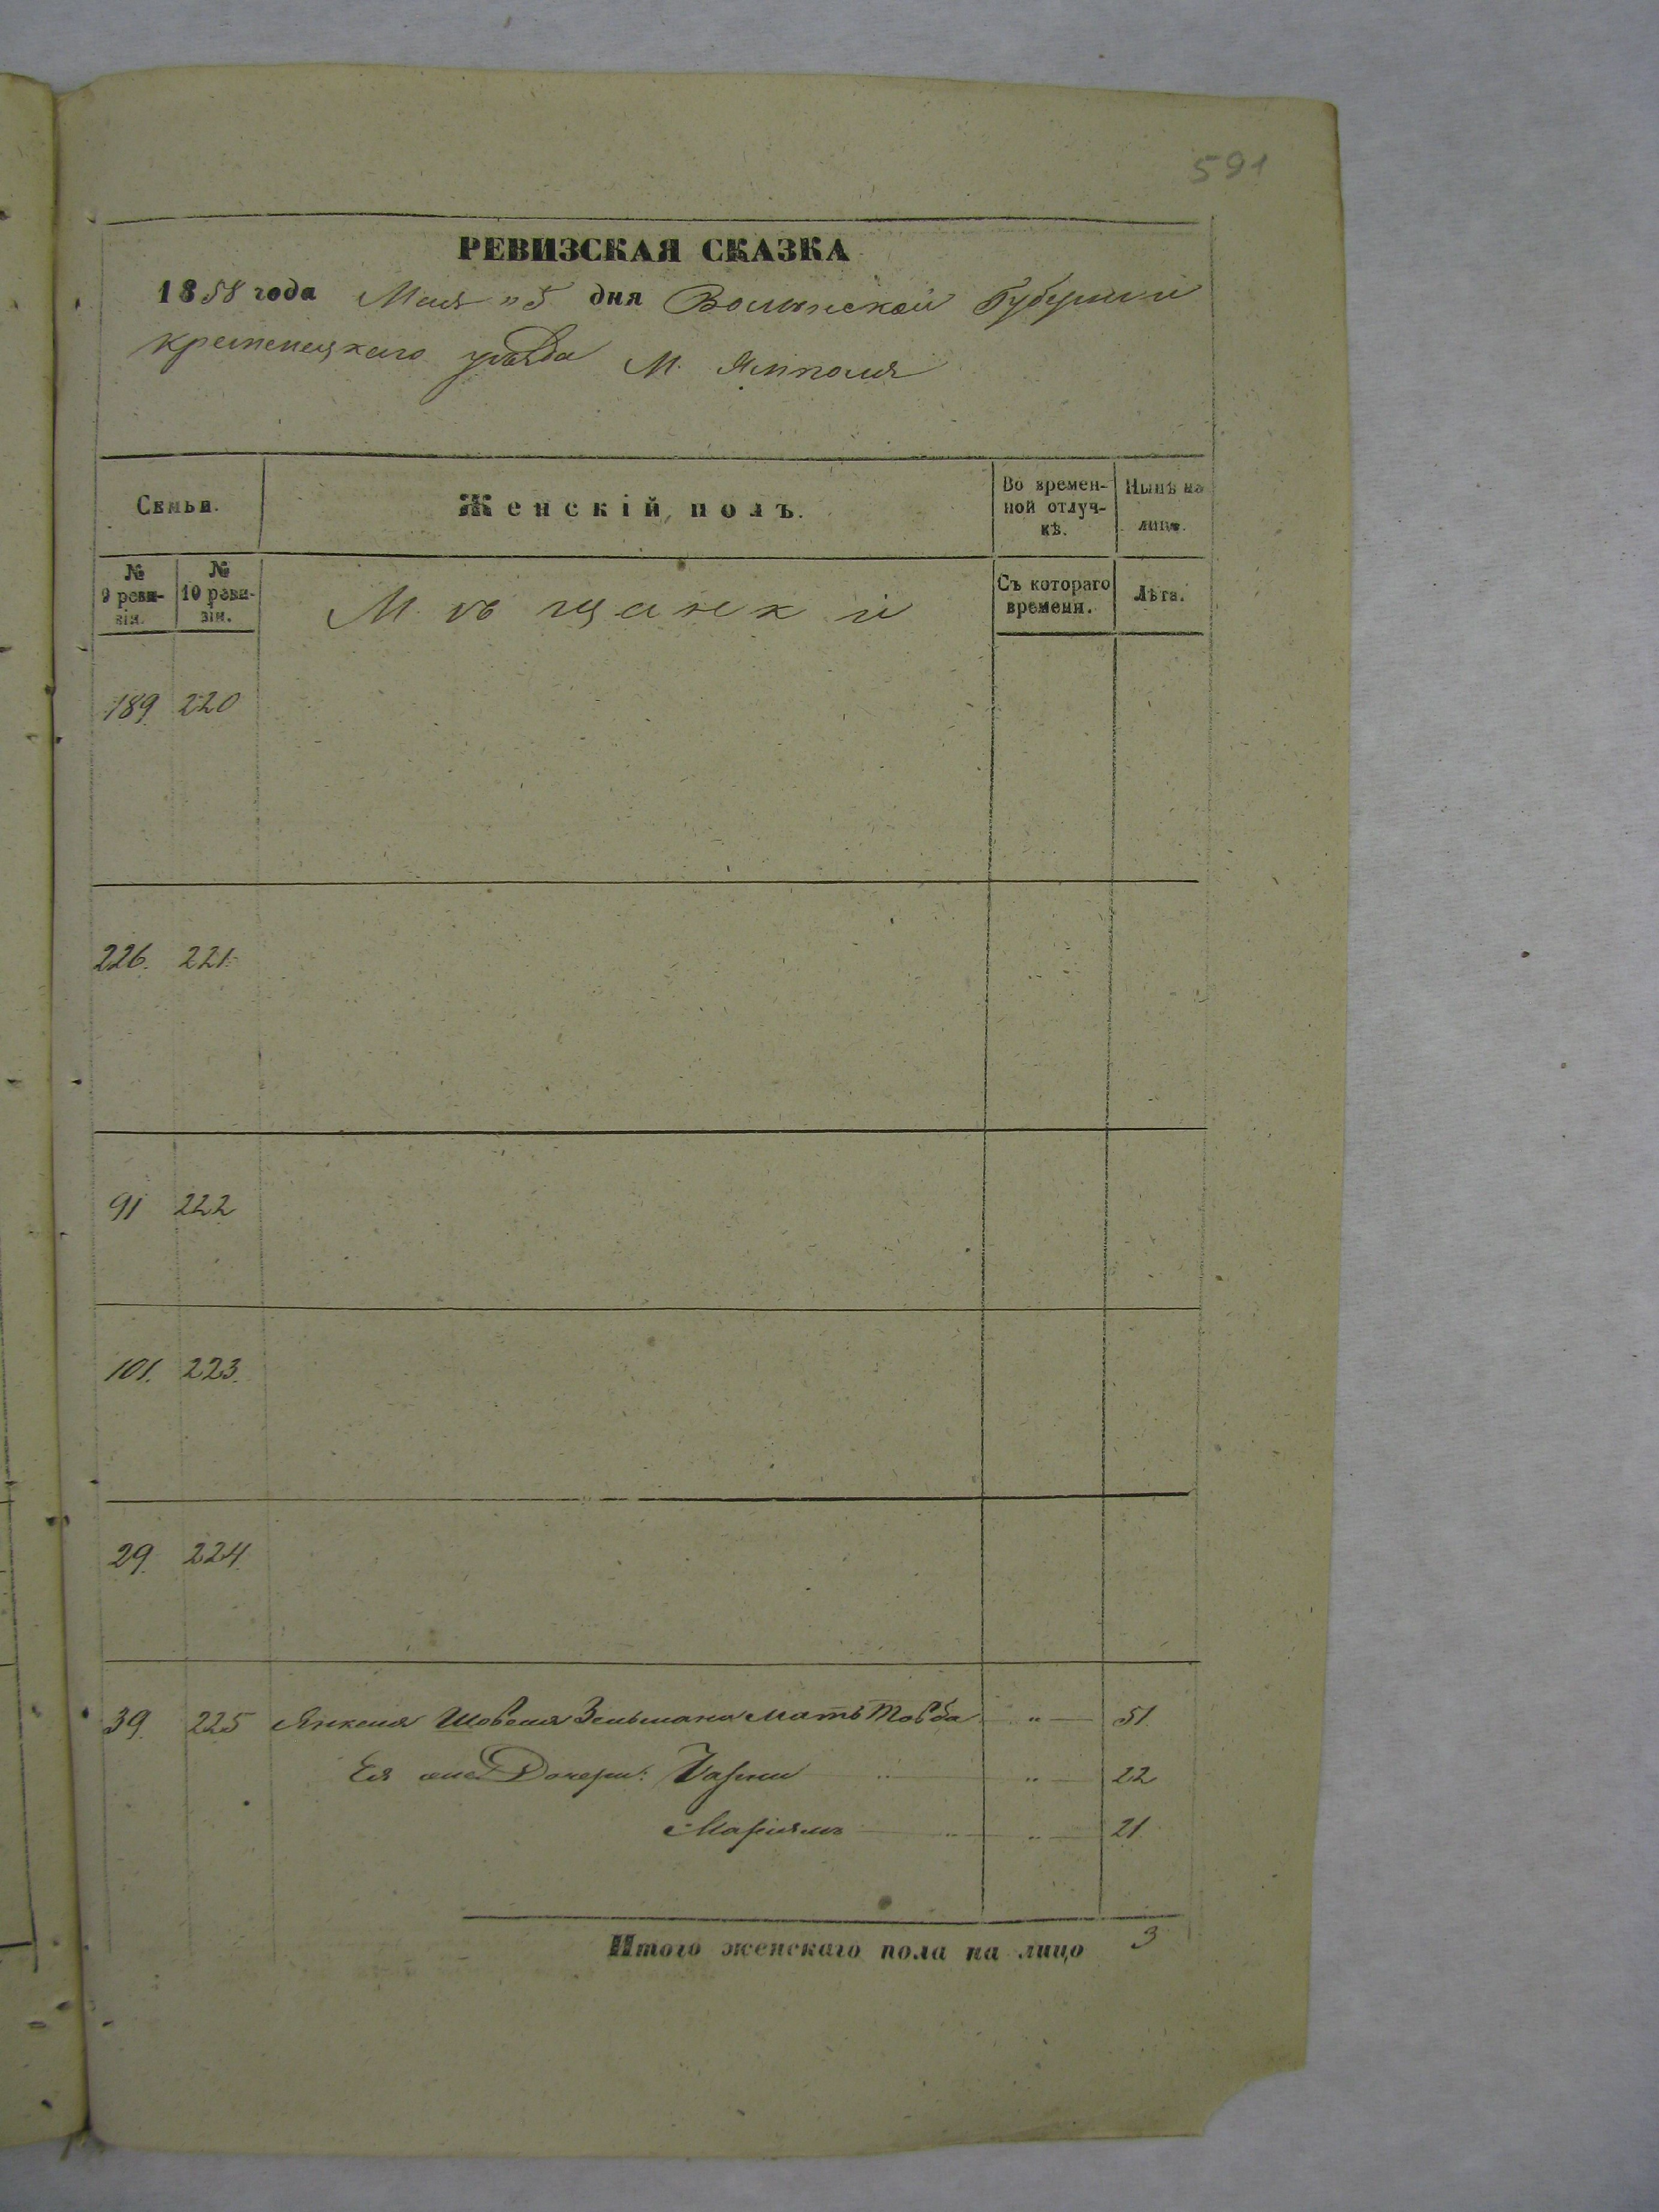 591
РЕВИЗСКАЯ СКАЗКА
1858 года Мая "5 дня Волынской Губернии
Кременецкаго уѣзда М. Ямполя
Семьи.
Женскій полъ.
Во времен-
ной отлуч-
кѣ.
Нынѣ на
лицо.
№
9 реви-
зіи.
№
10 реви-
зіи.
Мѣщанки
Съ котораго
времени.
Лѣта.
189 220
226. 221.
91 222
101. 223.
29. 224.
39. 225 Янкеля Шовеля Зельмана мать Товба " 51.
Ея же Дочери: " 22
Маріямъ " 21.
Итого женскаго пола на лицо 3